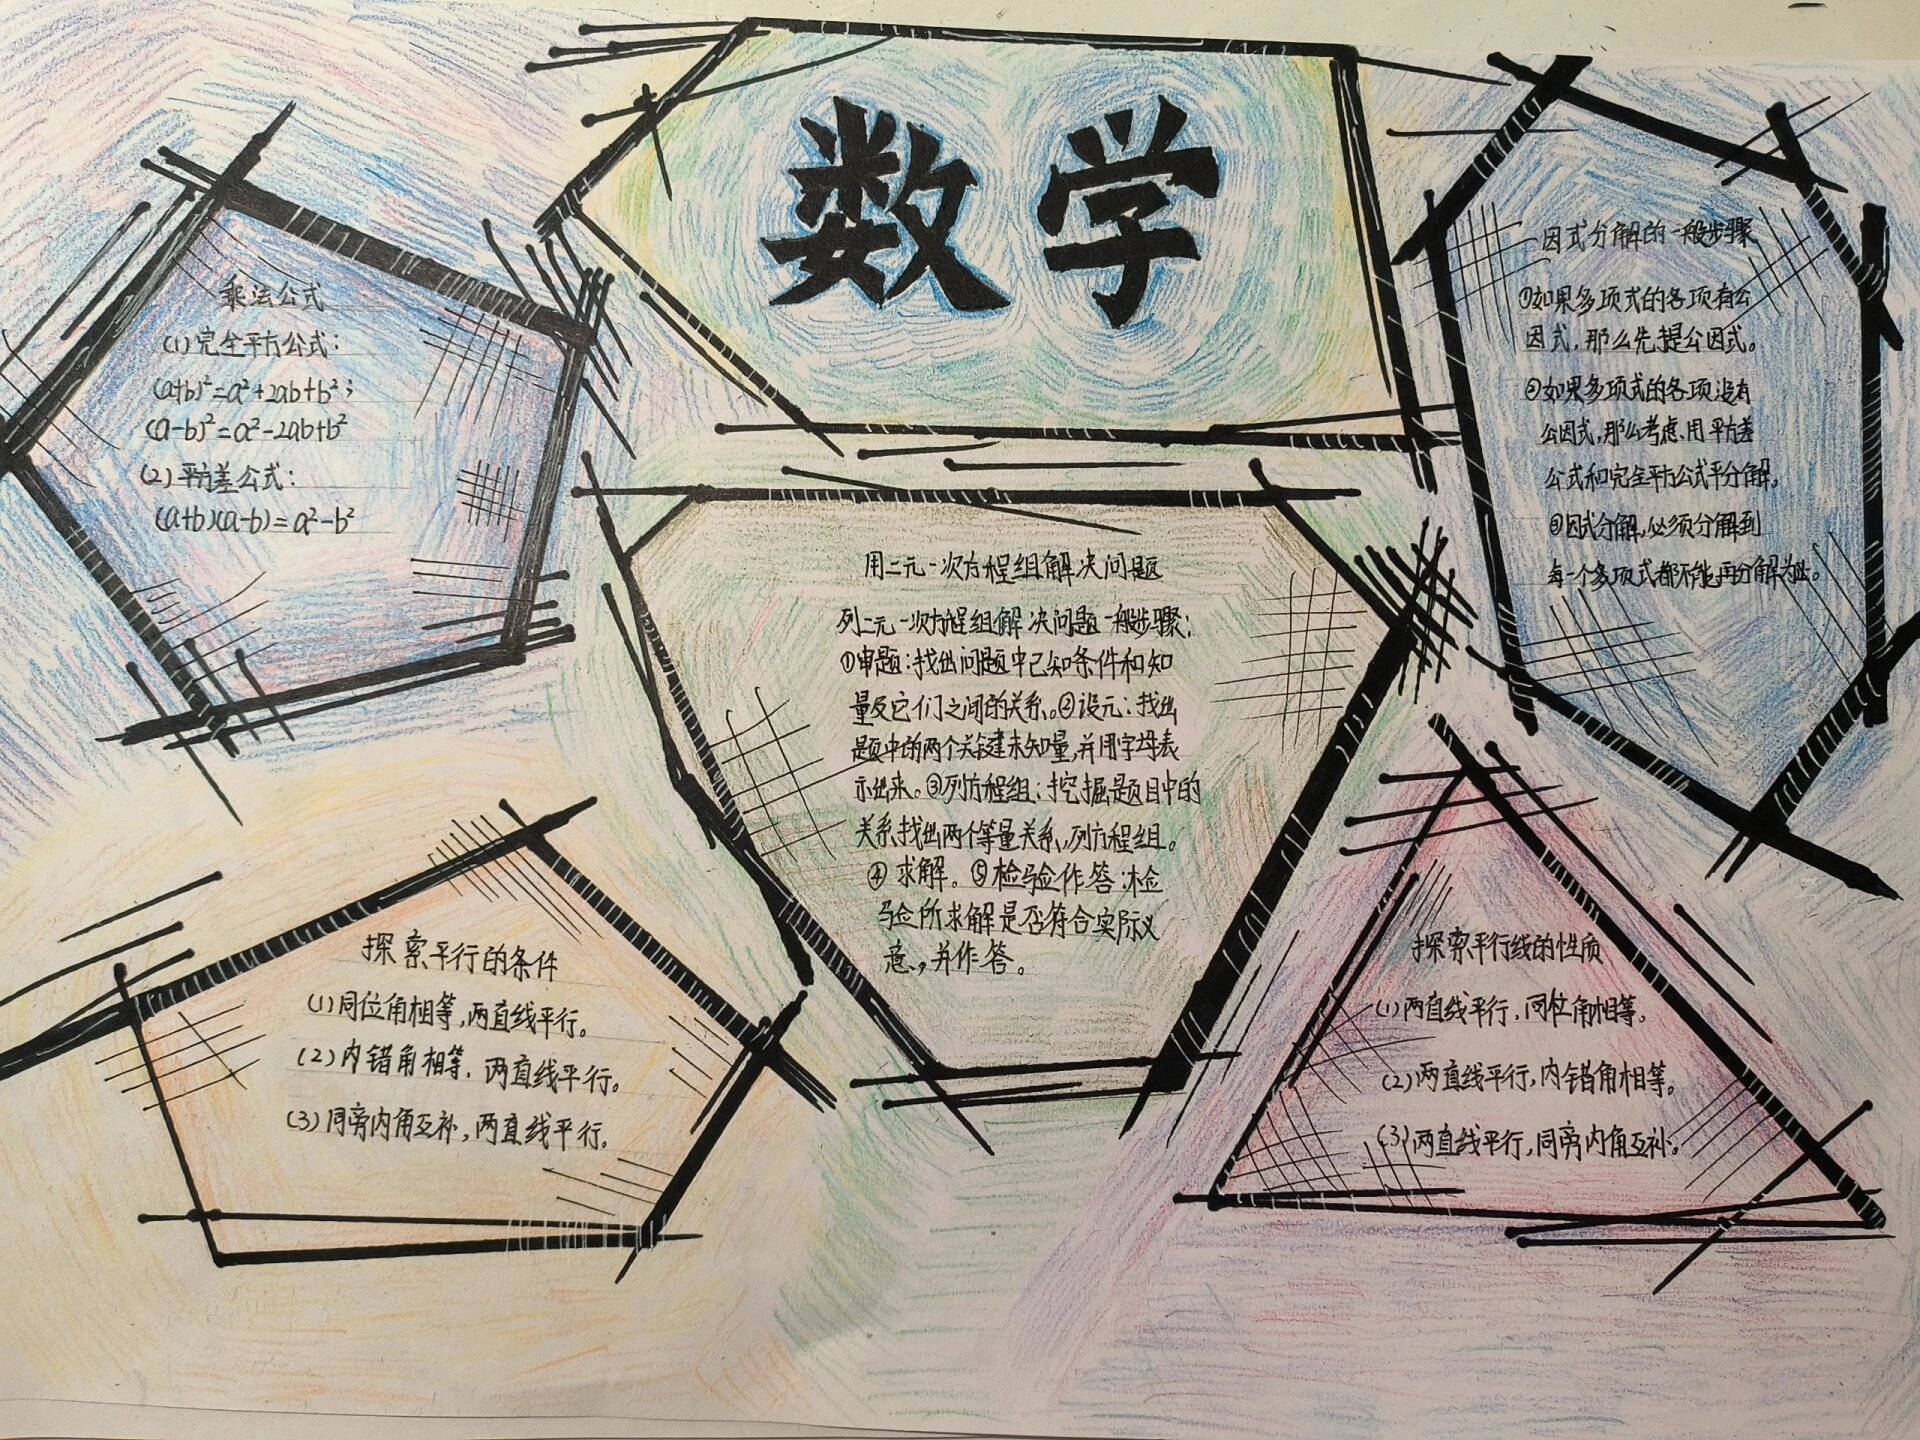 数学
乘法公式
(1)完全平方公式：
(a+b)²=a²+2ab+b²；
(a-b)²=a²-2ab+b²
(2)平方差公式：
(a+b)(a-b)=a²-b²
因式分解的一般步骤
①如果多项式的各项有公
因式，那么先提公因式。
②如果多项式的各项没有
公因式，那么考虑用平方差
公式和完全平方公式平分解。
③因式分解，必须分解到
每一个多项式都不能再分解为止。
用二元一次方程组解决问题
列二元一次方程组解决问题一般步骤：
①审题：找出问题中已知条件和知
量及它们之间的关系。②设元：找出
题中的两个关键未知量，并用字母表
示出来。③列方程组：挖掘题目中的
关系，找出两个等量关系，列方程组。
④求解。⑤检验作答：检
验所求解是否符合实际义
意，并作答。
探索平行的条件
(1)同位角相等，两直线平行。
(2)内错角相等，两直线平行。
(3)同旁内角互补，两直线平行。
探索平行线的性质
(1)两直线平行，同位角相等。
(2)两直线平行，内错角相等。
(3)两直线平行，同旁内角互补。